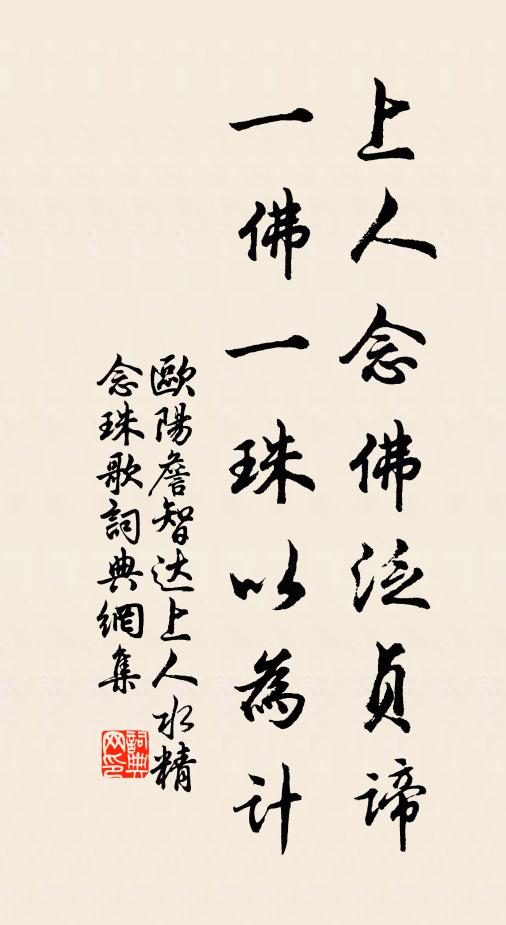 上人念佛泛貞諦
一佛一珠以為計
歐陽詹智达上人水精
念珠歌詞典網集
詞典
网印